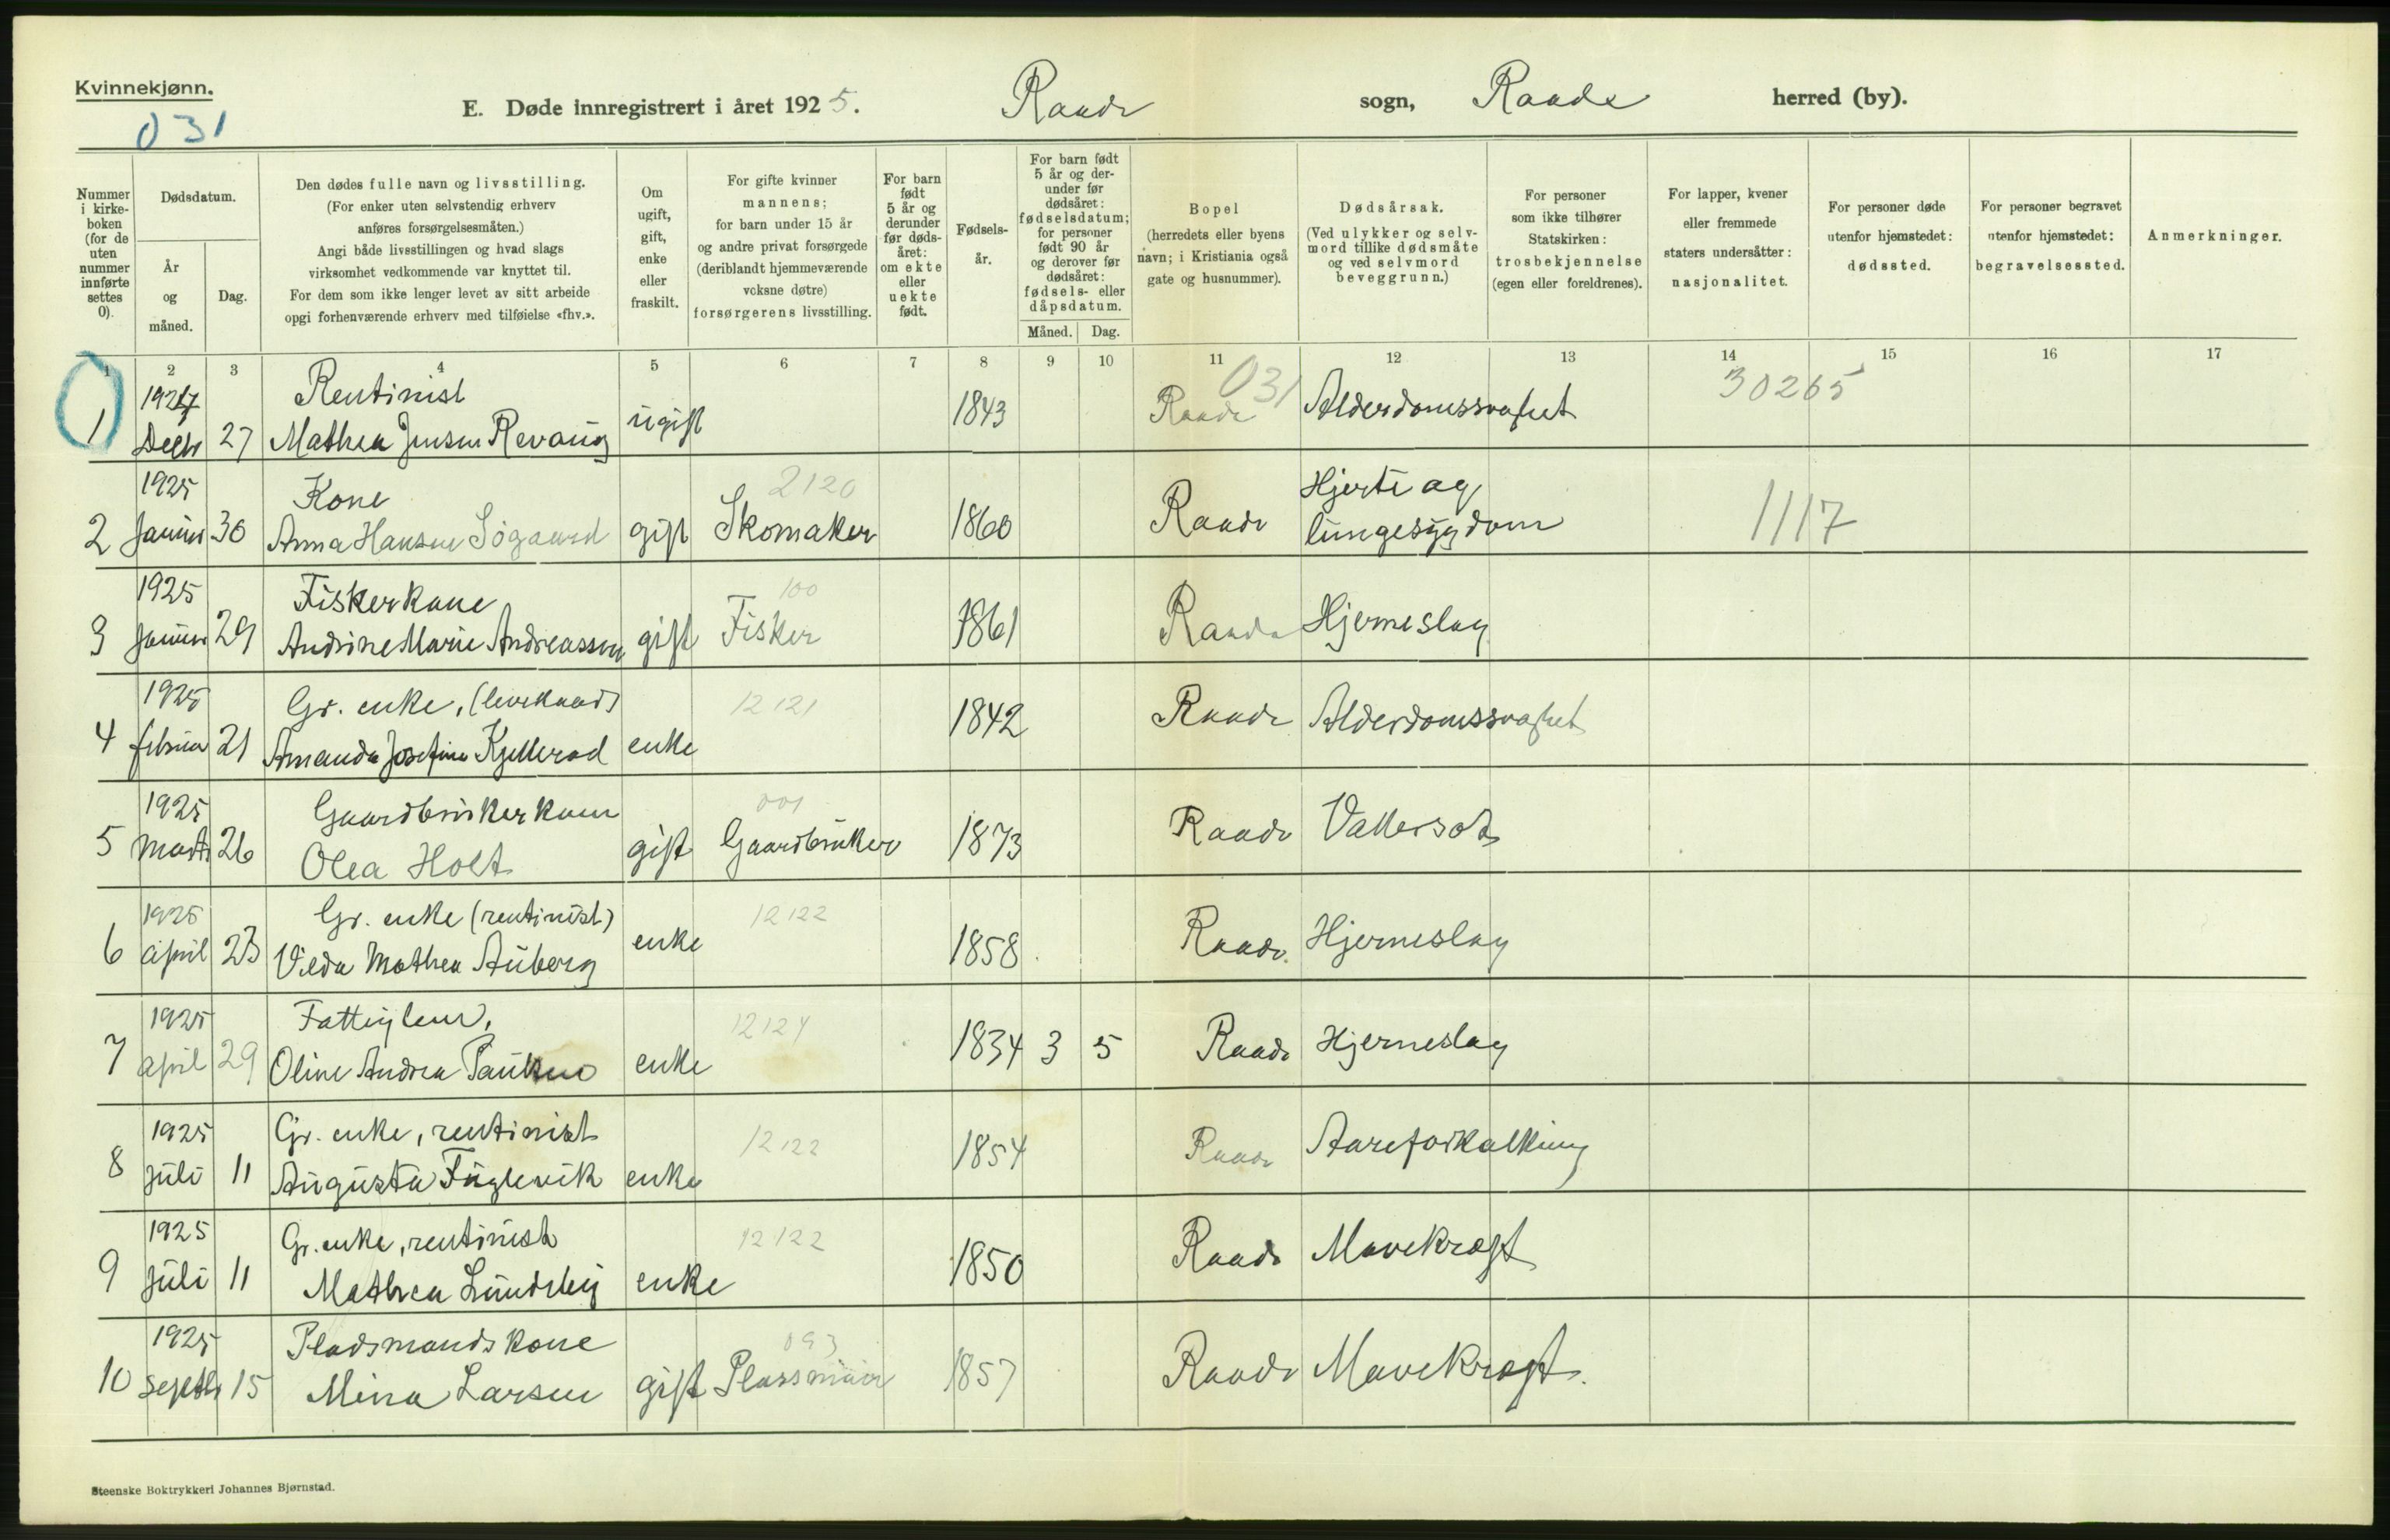 Kvinnekjønn.
031
E. Døde innregistrert i året 1925. Raade sogn, Raade herred (by).
Nummer i kirkeboken (for de uten nummer innførte settes 0).
Dødsdatum.
År og måned.
Dag.
Den dødes fulle navn og livsstilling.
(For enker uten selvstendig erhverv
anføres forsørgelsesmåten.)
Angi både livsstillingen og hvad slags
virksomhet vedkommende var knyttet til.
For dem som ikke lenger levet av sitt arbeide
opgi forhenværende erhverv med tilføielse «fhv.».
Om ugift, gift, enke eller fraskilt.
For gifte kvinner
mannens;
for barn under 15 år
og andre privat forsørgede
(deriblandt hjemmeværende
voksne døtre)
forsørgerens livsstilling.
For barn født 5 år og derunder før dødsåret: om ekte eller uekte født.
Fødselsår.
For barn født 5 år og derunder før dødsåret: fødselsdatum; for personer født 90 år og derover før dødsåret: fødsels- eller dåpsdatum.
Måned.
Dag.
Bopel
(herredets eller byens
navn; i Kristiania også
gate og husnummer).
Dødsårsak.
(Ved ulykker og selvmord tillike dødsmåte og ved selvmord beveggrunn.)
For personer
som ikke tilhører
Statskirken:
trosbekjennelse
(egen eller foreldrenes).
For lapper, kvener
eller fremmede
staters undersåtter:
nasjonalitet.
For personer døde
utenfor hjemstedet:
dødssted.
For personer begravet
utenfor hjemstedet:
begravelsessted.
Anmerkninger.
1 2 3 4 5 6 7 8 9 10 11 12 13 14 15 16 17
1924 Rentinist 031 30265
1 Decbr 27 Mathea Jensen Revaug ugift 1843 Raade Alderdomssvakhet
1925 Kone 2120 Hjerte og
2 Januar 30 Anna Hansen Sögaard gift Skomaker 1860 Raade lungesygdom 1117
1925 Fiskerkone 100
3 Januar 29 Andrine Marie Andreassen gift Fisker 1861 Raade Hjerneslag
1925 Gr. enke, 12121
4 februar 21 Amanda Josefine Kjellerød enke 1842 Raade Alderdomssvakhet
1925 Gaardbrukerkone 001
5 Marts 26 Olea Holt gift Gaardbruker 1873 Raade Vattersot
1925 Gr. enke (rentinist) 12122
6 april 23 Mathea Auberg enke 1858 Raade Hjerneslag
1925 Fattiglem, 12124
7 april 29 Oline Andrea Paulsen enke 1834 3 5 Raade Hjerneslag
1925 Gr. enke, rentinist 12122
8 Juli 11 Augusta Fuglevik enke 1854 Raade Aareforkalkning
1925 Gr. enke, rentinist 12122
9 Juli 11 Mathea Lundeby enke 1850 Raade Mavekræft
1925 Pladsmandskone 093
10 Septbr 15 Mina Larsen gift Plassmann 1857 Raade Mavekræft.
Steenske Boktrykkeri Johannes Bjørnstad.